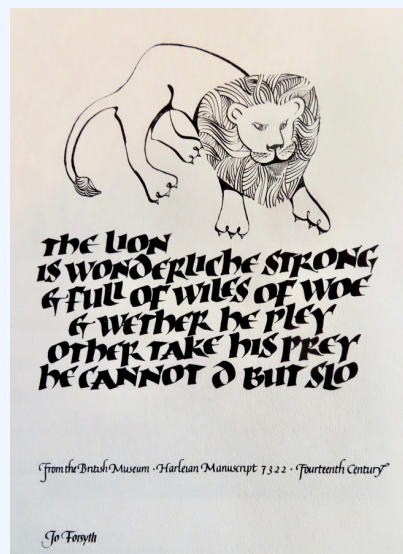 THE LION
IS WONDERLICHE STRONG
& FULL OF WILES OF WOE
& WETHER HE PLEY
OTHER TAKE HIS PREY
HE CANNOT D BUT SLO
From the British Museum · Harleian Manuscript 7322 · Fourteenth Century
Jo Forsyth